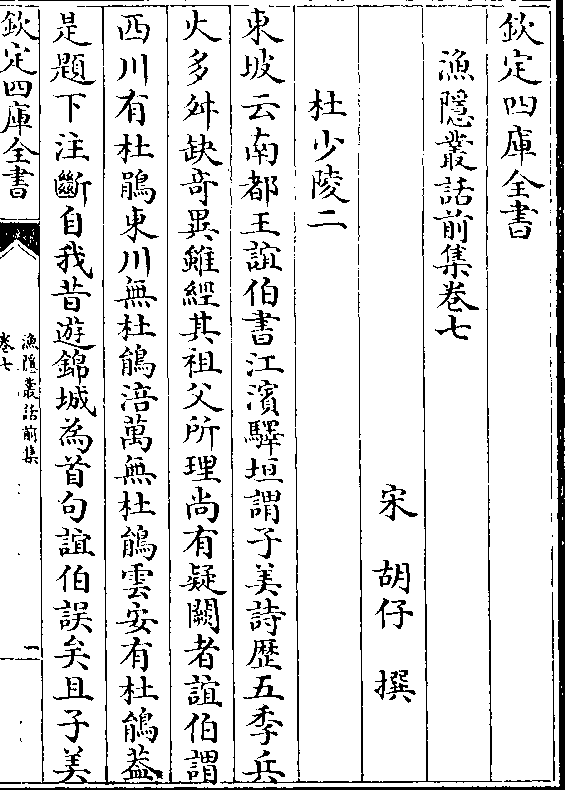 欽定四庫全書
漁隱叢話前集卷七
宋 胡仔 撰
杜少陵二
東坡云南都王誼伯書江濱驛垣謂子美詩歴五季兵
火多舛缺奇異雖經其祖父所理尚有疑闕者誼伯謂
西川有杜鵑東川無杜鵑涪萬無杜鵑雲安有杜鵑葢
是題下注斷自我昔遊錦城為首句誼伯誤矣且子美
欽定四庫全書
漁隱叢話前集
卷七
一